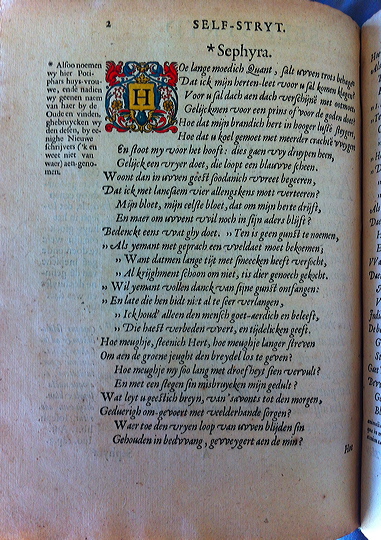 2 SELF-STRYT.
* Sephyra.
* Alsoo noemen
wy hier Poti-
phars huys-vrou-
we, ende nadien
wy geenen naem
van haer by de
Oude en vinden,
ghebruycken wy
den desen, by ee-
nighe Nieuwe
schrijvers ('k en
weet niet van
waer) aen-geno-
men.
HOe lange moedich Quant, salt uwen trots behagen
Dat ick mijn herten-leet voor u sal komen klagen?
Voor u sal dach aen dach verschijne met ootmoet,
Gelijckmen voor een prins of voor de goden doet?
Hoe dat mijn brandich hert in hooger luste steygert,
Hoe dat u koel gemoet met meerder crachte weygert
En stoot my voor het hooft: dies gaen wy druypen heen,
Gelijck een vryer doet, die loopt een blauwe scheen.
Woont dan in uwen geest soodanich wreet begeeren,
Dat ick met lancksaem vier allengskens mott verteeren?
Mijn bloet, mijn eelste bloet, dat om mijn herte drijft,
En maer om uwent wil noch in sijn aders blijft?
Bedenckt eens wat ghy doet. „ Ten is geen gunst te noemen,
„ Als yemant met geprach een weldaet moet bekomen;
„ Want datmen lange tijt met smeecken heeft versocht,
„ Al krijghment schoon om niet, tis dier genoech gekocht.
„ Wil yemant vollen danck van sijne gunst ontfangen:
„ En late die hen bidt niet al te seer verlangen,
„ Ick houd' alleen den mensch goet-aerdich en beleeft,
„ Die haest verbeden wert, en tijdelicken geeft.
Hoe meughje, steenich Hert, hoe meughje langer streven
Om aen de groene jeught den breydel los te geven?
Hoe meughje my soo lang met droefheyt sien vervult?
En met een stegen sin misbruycken mijn gedult?
Wat leyt u geestich breyn, van 'savonts tot den morgen,
Geduerigh om-gevoert met velderhande sorgen?
Waer toe den vryen loop van uwen blijden sin
Gehouden in bedwang, geweygert aen de min?
Hoe